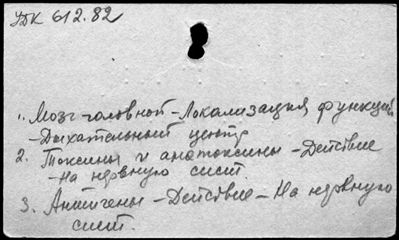 УДК 612.82
1. Мозг головной – Локализация функций
– Дыхательный центр
2. Токсины и анатоксины – Действие
– На нервную сист.
3. Антигены – Действие – На нервную
сист.